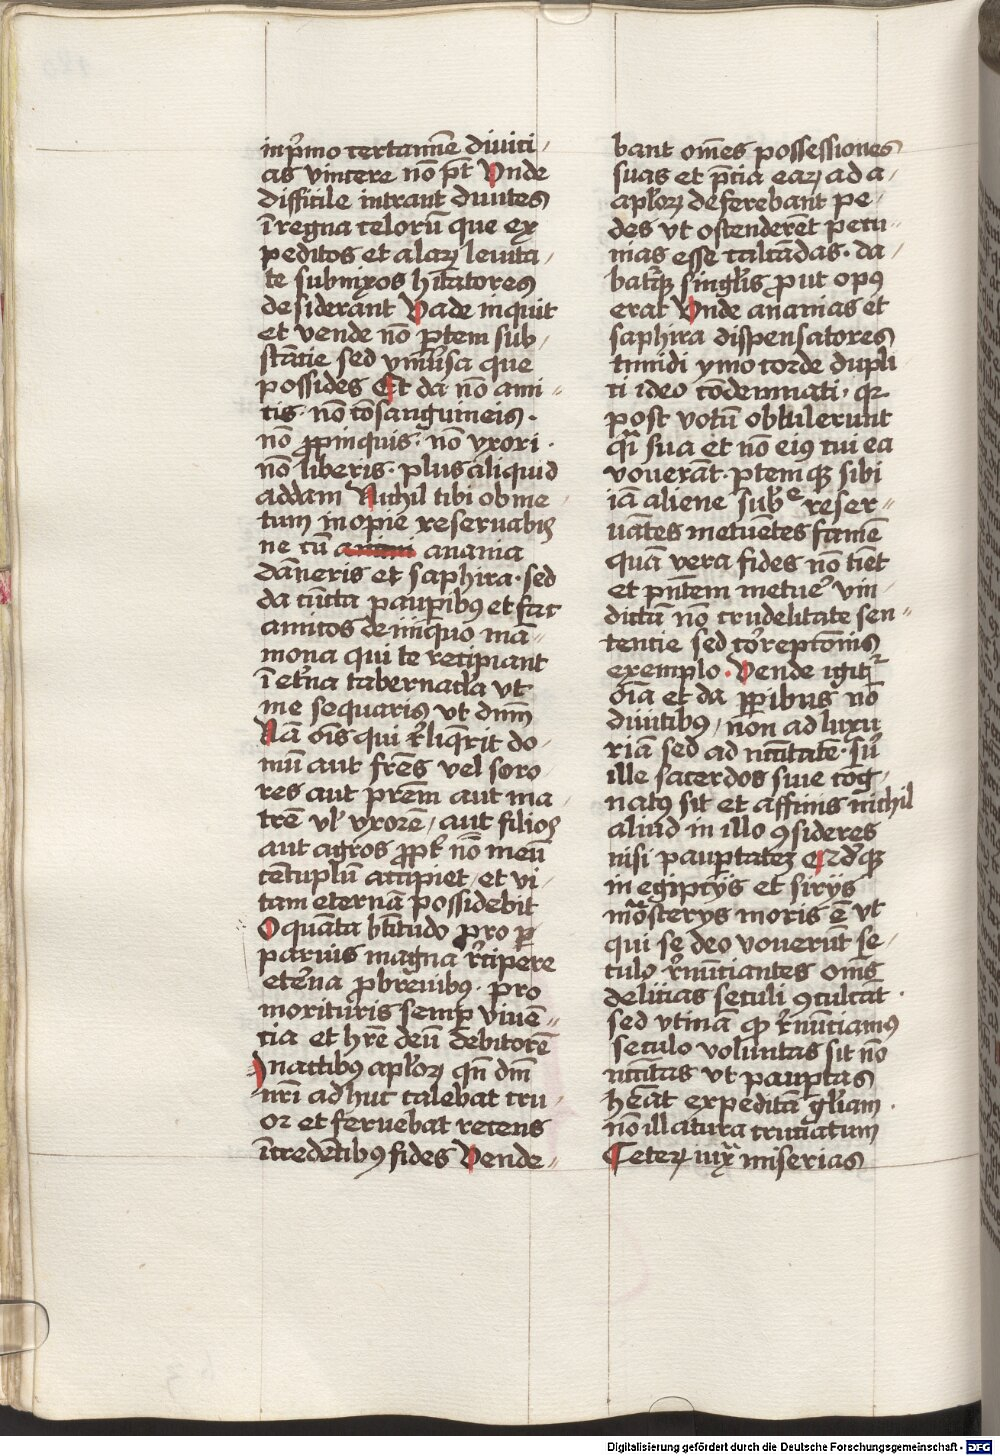 inp̄mo certamīe diviti/
as vincere nō pt̄ Unde
difficile intrant divites
ī regna celorū que ex
peditos et alaꝝ levita/
te subnixos hītatores
desiderant Vade inquit
et vende nō ꝑtem sub/
stātie sed vniūsa que
possides Et da nō ami
cis· nō cōsanguineis·
nō ꝓpinquis· nō vxori·
nō liberis· plus aliquid
addam Nichil tibi ob me
tum inopie reservabis
ne cū anania
dāneris et saphira· sed
da cūcta pauꝑibꝰ et fac
amicos de iniquo mā
mona qui te recipiant
ī et̄na tabernacl̄a vt
me sequaris vt dnm̄
Nā oīs qui r̄liqr̄it do/
mū aut fr̄es vel soro
res aut pr̄em aut ma/
trē vl̄ vxorē/ aut filios
aut agros ꝓpt̄ nōm̄ meū
cētuplū accipiet/ et vi/
tam eternā possidebit
O quāta bt̄itudo pro
parvis magna r̄cipere
et̄na ꝓ brēvibꝰ· pro
morituris semꝑ vivē
tia et hr̄e deū debitorē
In actibꝰ apl̄oꝝ qn̄ dnī
nr̄i adhuc calebat cru
or et fervebat recens
ī credētibꝰ fides Vende
bant om̄es possessiones
suas et p̄cia eaꝝ ad a/
apl̄oꝝ deferebant pe/
des vt ostenderēt pecu/
nias esse calcādas· da/
batꝗ singl̄is ꝓut opꝰ
erat Unde ananias et
saphira dispensatores
timidi ymo corde dupli
ci ideo cōdemnati· qꝛ
post votū obtulerunt
qͣi sua et nō eiꝰ cui ea
voverāt· ꝑtemqꝫ sibi
iā aliene sub̄e reser
vātes metuētes famē
quā vera fides nō tīet
et pn̄tem metuēr vin
dictā nō crudelitate sen
tentie sed cōreptōnis
exemplo· Vende igitͬ
oīa et da pꝑibus nō
divitibꝰ/ non ad luxu
riā sed ad nccitatē· sīr
ille sacerdos sive cog/
natꝰ sit et affinis nichil
aliud in illo ꝯsideres
nisi pauꝑtateꝫ
in egiptijs et sirijs
mōsterijs moris ē vt
qui se deo voverūt se/
culo r̄nūciantes om̄s
delitias seculi ꝯculcāt·
sed vtinā r̄nūciamꝰ
seculo voluntas sit nō
nccitas vt pauꝑtas
hēat expeditā gl̄iam·
nō illatura cruciatum
Ceteꝝ iuxͣ miserias